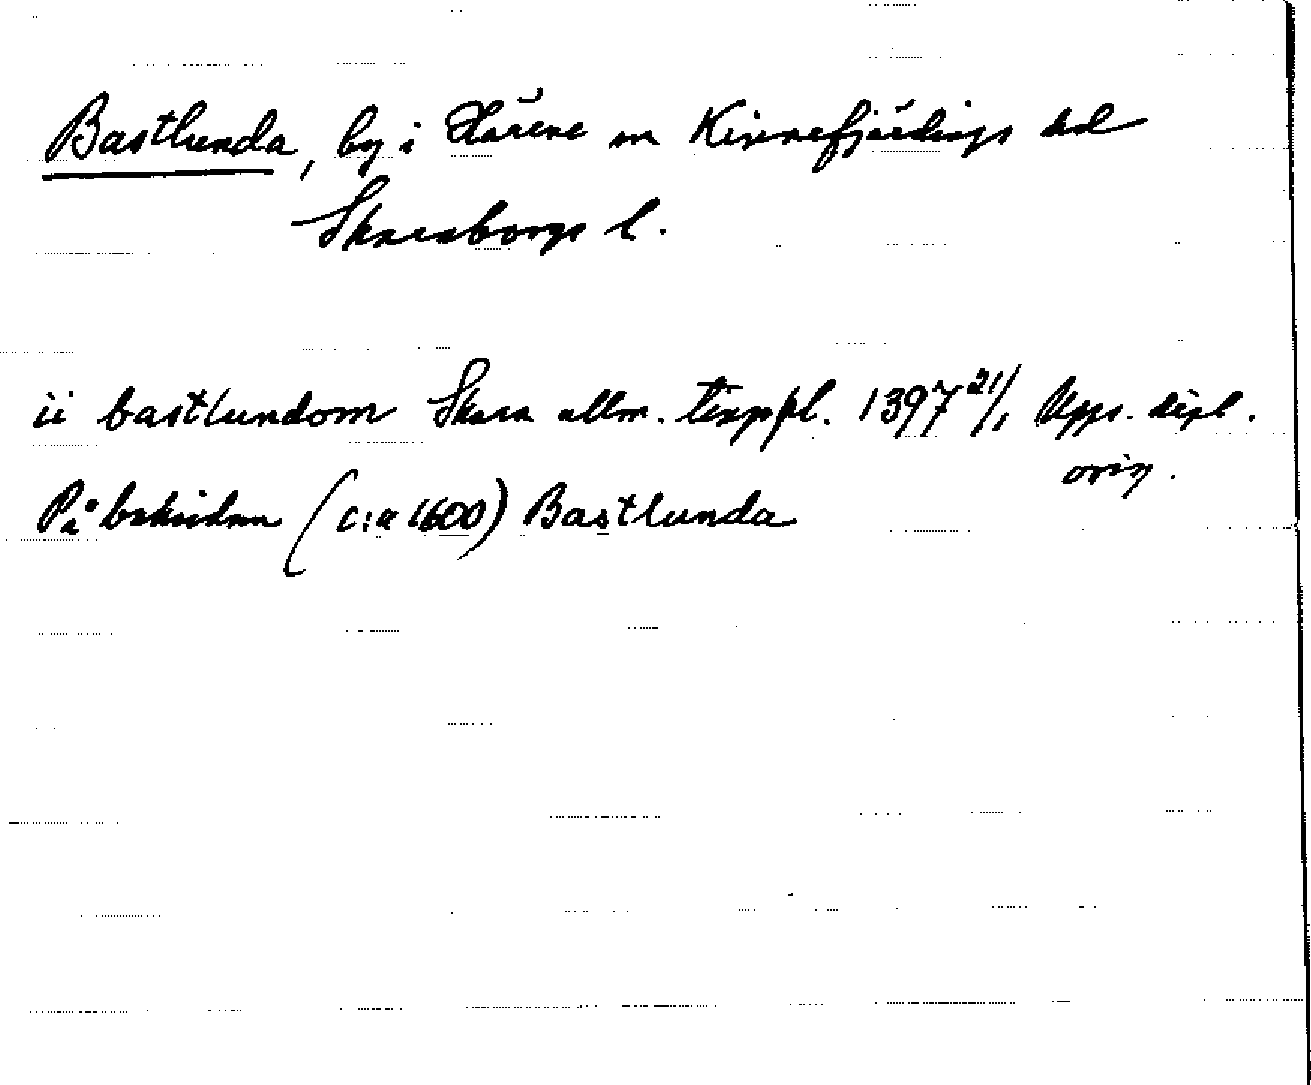 Bastlunda, by i Härene sn Kinnefjärdings hd
Skaraborgs l.
ii bastlundom Skara allm. tingspl. 1397 21/1 Upps. dipl.
orig.
På baksidan (c:a 1600) Bastlunda